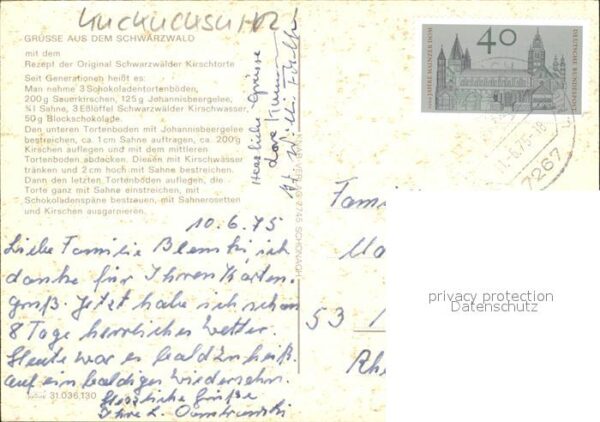 GRÜSSE AUS DEM SCHWARZWALD
mit dem
Rezept der Original Schwarzwälder Kirschtorte
Seit Generationen heißt es:
Man nehme 3 Schokoladentortenböden,
200 g Sauerkirschen, 125 g Johannisbeergelee,
¾ l Sahne, 3 Eßlöffel Schwarzwälder Kirschwasser,
50 g Blockschokolade.
Den unteren Tortenboden mit Johannisbeergelee
bestreichen, ca. 1 cm Sahne auftragen, ca. 200 g
Kirschen auflegen und mit dem mittleren
Tortenboden abdecken. Diesen mit Kirschwasser
tränken und 2 cm hoch mit Sahne bestreichen.
Dann den letzten Tortenboden auflegen, die
Torte ganz mit Sahne einstreichen, mit
Schokoladenspäne bestreuen, mit Sahnerosetten
und Kirschen ausgarnieren.
10.6.75
Liebe Familie ich
danke für Ihren Karten-
gruß. Jetzt habe ich schon
8 Tage herrliches Wetter.
Heute war es bald zu heiß.
Auf ein baldiges Wiedersehn.
Herzliche Grüße
Ihre L.
31.036.130
Herzliche Grüsse
7745 SCHONACH
40
DEUTSCHE BUNDESPOST
1000 JAHRE MAINZER DOM
6.75-18
7267
Fami
53
Rhe
privacy protection
Datenschutz